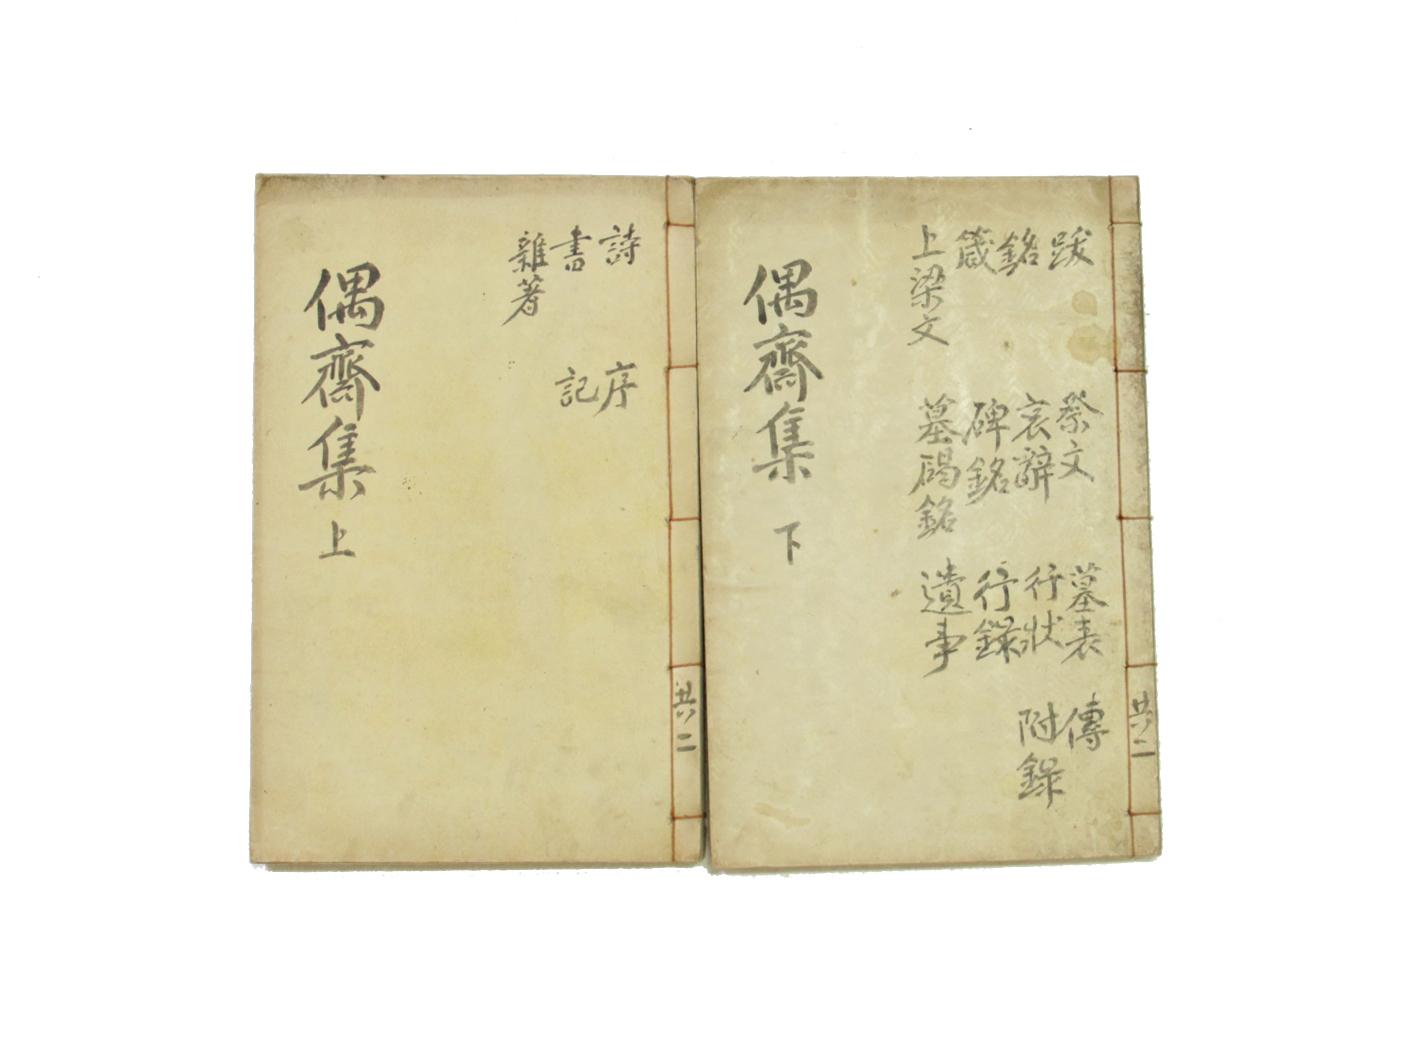 跋
銘
箴
上梁文
祭文
哀辭
碑銘
墓碣銘
墓表
行狀
行錄
遺事
傳
附錄
偶齋集 下
共二
詩
書
雜著
序
記
偶齋集 上
共二